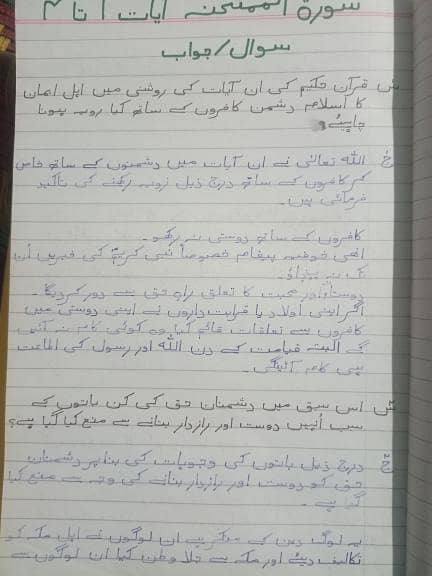 سورۃ الممتحنہ آیات ۱ تا ۴
سوال/جواب
س قرآن حکیم کی ان آیات کی روشنی میں اہل ایمان
کا اسلام دشمن کافروں کے ساتھ کیا رویہ ہونا
چاہیئے؟
ج اللہ تعالیٰ نے ان آیات میں دشمنوں کے ساتھ خاص
کر کافروں کے ساتھ درج ذیل رویہ رکھنے کی تاکید
فرمائی ہیں۔
کافروں کے ساتھ دوستی نہ رکھو۔
خفیہ پیغام خصوصاً نبی کریمؐ کی خبریں اُن
تک نہ پہنچاؤ۔
دوستانہ اور محبت کا تعلق راہِ حق سے دور کر دیگا۔
اگر اپنی اولاد یا قرابت داروں نے اپنی دوستی میں
کافروں سے تعلقات قائم کیا وہ کوئی کام نہ آئیں
گے البتہ قیامت کے دن اللہ اور رسول کی اطاعت
ہی کام آئیگی۔
س اس سبق میں دشمنان حق کی کن باتوں کے
سبب اُنہیں دوست اور رازدار بنانے سے منع کیا گیا ہے؟
ج درج ذیل باتوں کی وجوہات کی بنا پر دشمنان
حق کو دوست اور رازدار بنانے کی وجہ سے منع کیا
گیا ہے۔
یہ لوگ دین کے منکر ہے ان لوگوں نے اہل مکہ کو
تکالیف دیئے اور مکہ سے جلا وطن کیا ان لوگوں سے